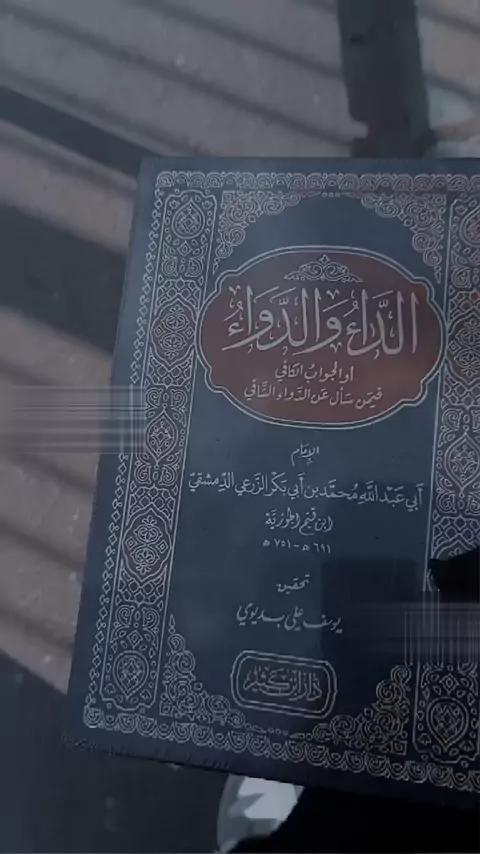 الدَّاءُ وَالدَّوَاءُ
أو الجوابُ الكافي
فيمَن سَأل عَن الدَّواء الشَّافي
الإمَام
أبي عَبْد اللَّه مُحمَّد بن أبي بَكْر الزّرعي الدِّمشقيّ
ابن قيّم الجوزيَّة
٦٩١ هـ - ٧٥١ هـ
تحقيق
يوسف علي بديوي
دار ابن كثير